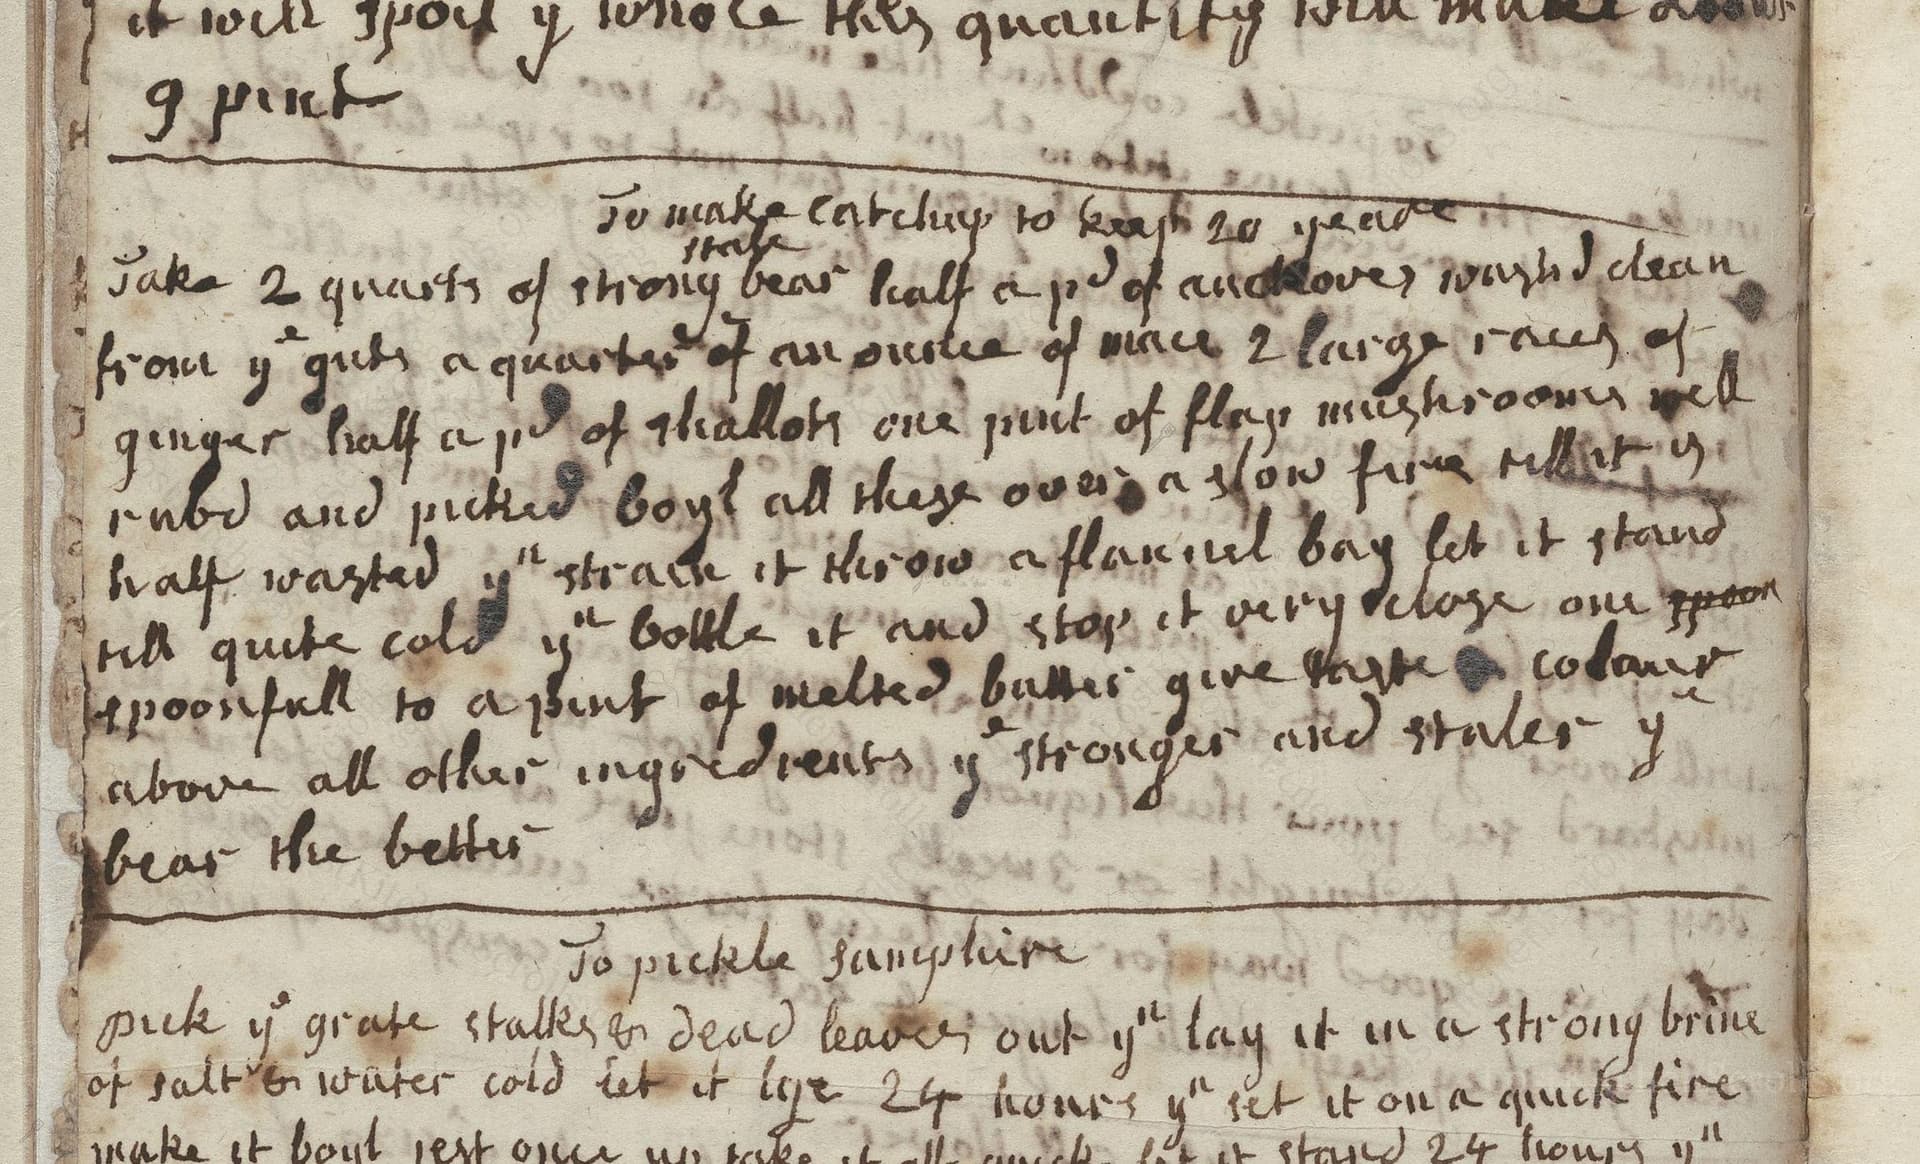 it will spoil y whole this quantity will make about
9 pint
To make Catchup to keep 20 yeare
stale
Take 2 quarts of strong bear half a pd of anchoves washd clean
from ye guts a quarter of an ounce of mace 2 large races of
ginger half a pd of shallots one pint of flap mushrooms well
rubd and picked boyl all these over a slow fire till it is
half wasted yn strain it throw a flannel bag let it stand
till quite cold yn bottle it and stop it very close one spoon
spoonfull to a pint of melted butter give taste colour
above all other ingredients ye stronger and staler ye
bear the better
To pickle samphire
pick ye grate stalks & dead leaves out yn lay it in a strong brine
of salt & water cold let it lye 24 hours yn set it on a quick fire
make it boyl jest once up take it off quick let it stand 24 hours yn